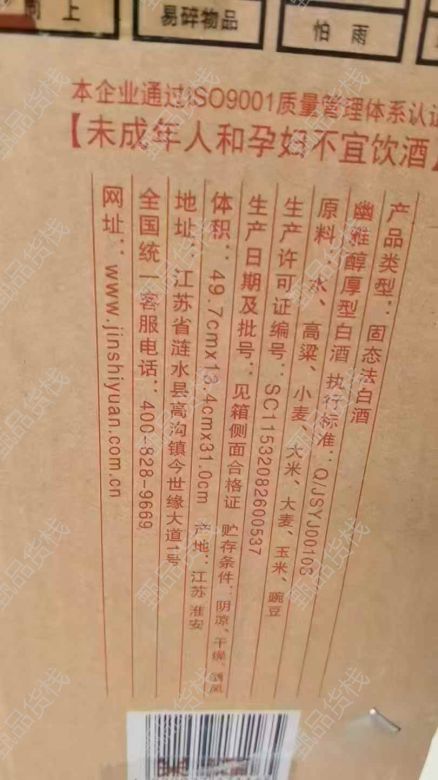 向上
易碎物品
怕雨
本企业通过ISO9001质量管理体系认证
【未成年人和孕妇不宜饮酒】
产品类型：固态法白酒
幽雅醇厚型白酒 执行标准：Q/JSYJ00103
原料：水、高粱、小麦、大米、大麦、玉米、豌豆
生产许可证编号：SC11532082600537
生产日期及批号：见箱侧面合格证 贮存条件：阴凉、干燥、通风
体积：49.7cmx13.4cmx31.0cm 产地：江苏 淮安
地址：江苏省涟水县高沟镇今世缘大道1号
全国统一客服电话：400-828-9669
网址：www.jinshiyuan.com.cn
甄品货栈